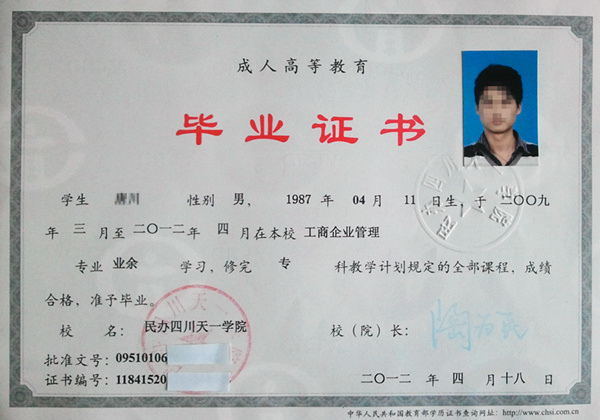 成人高等教育
毕业证书
学生 性别 男, 1987 年 04 月 11 日生, 于 二〇〇九
年 三 月至 二〇一二 年 四 月在本校 工商企业管理
专业 业余 学习, 修完 专 科教学计划规定的全部课程, 成绩
合格, 准予毕业。
校 名: 民办四川天一学院 校(院)长:
批准文号: 09510106
证书编号: 11841520 二〇一二 年 四 月 十八 日
中华人民共和国教育部学历证书查询网址: http://www.chsi.com.cn